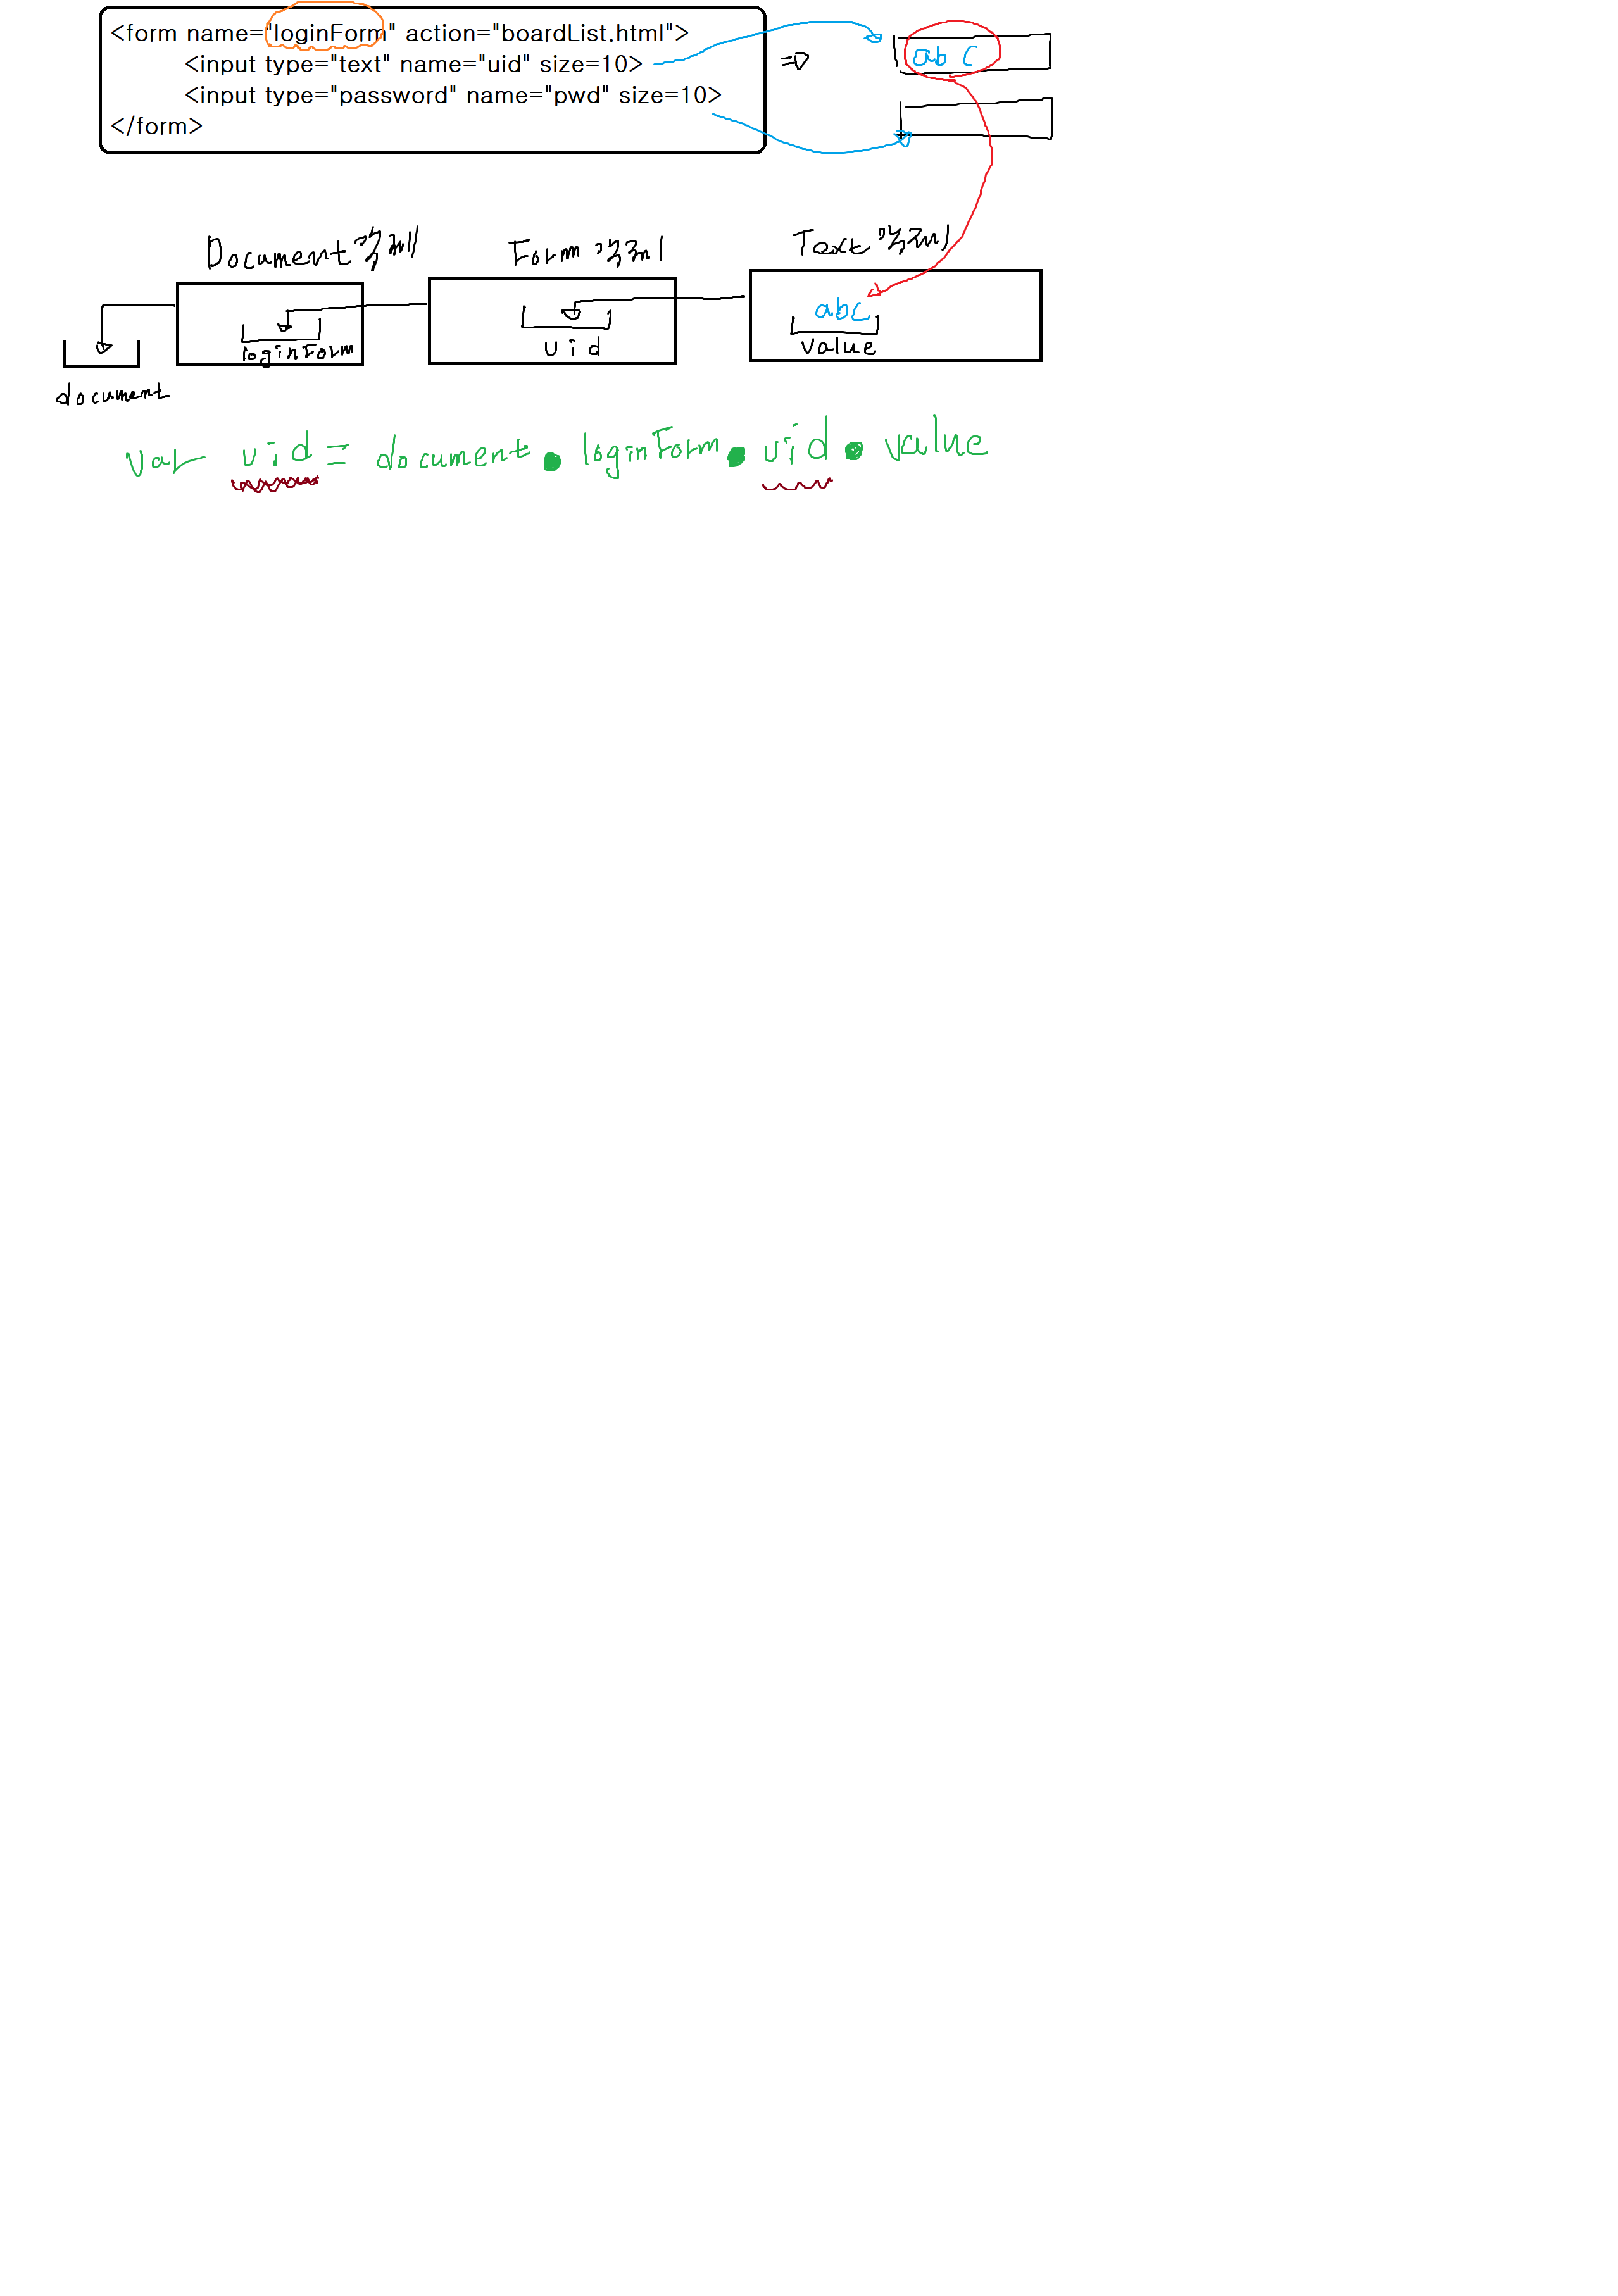 <form name="loginForm" action="boardList.html">
<input type="text" name="uid" size=10>
<input type="password" name="pwd" size=10>
</form>
=>
abc
Document객체
Form 객체
Text객체
loginForm
uid
abc
value
document
var uid = document.loginForm.uid.value